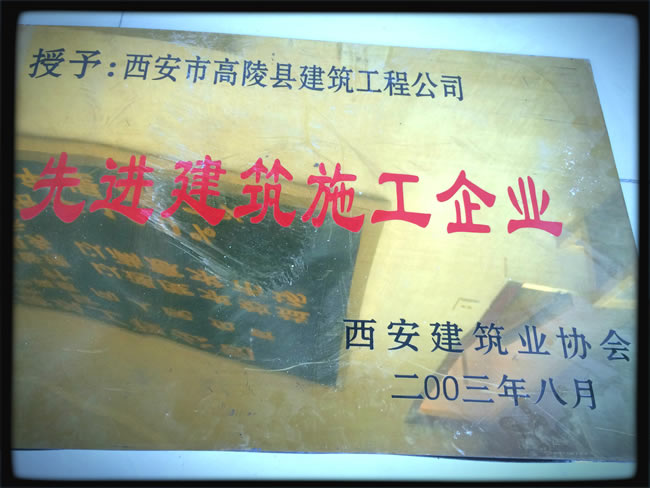 授予:西安市高陵县建筑工程公司
先进建筑施工企业
西安建筑业协会
二00三年八月